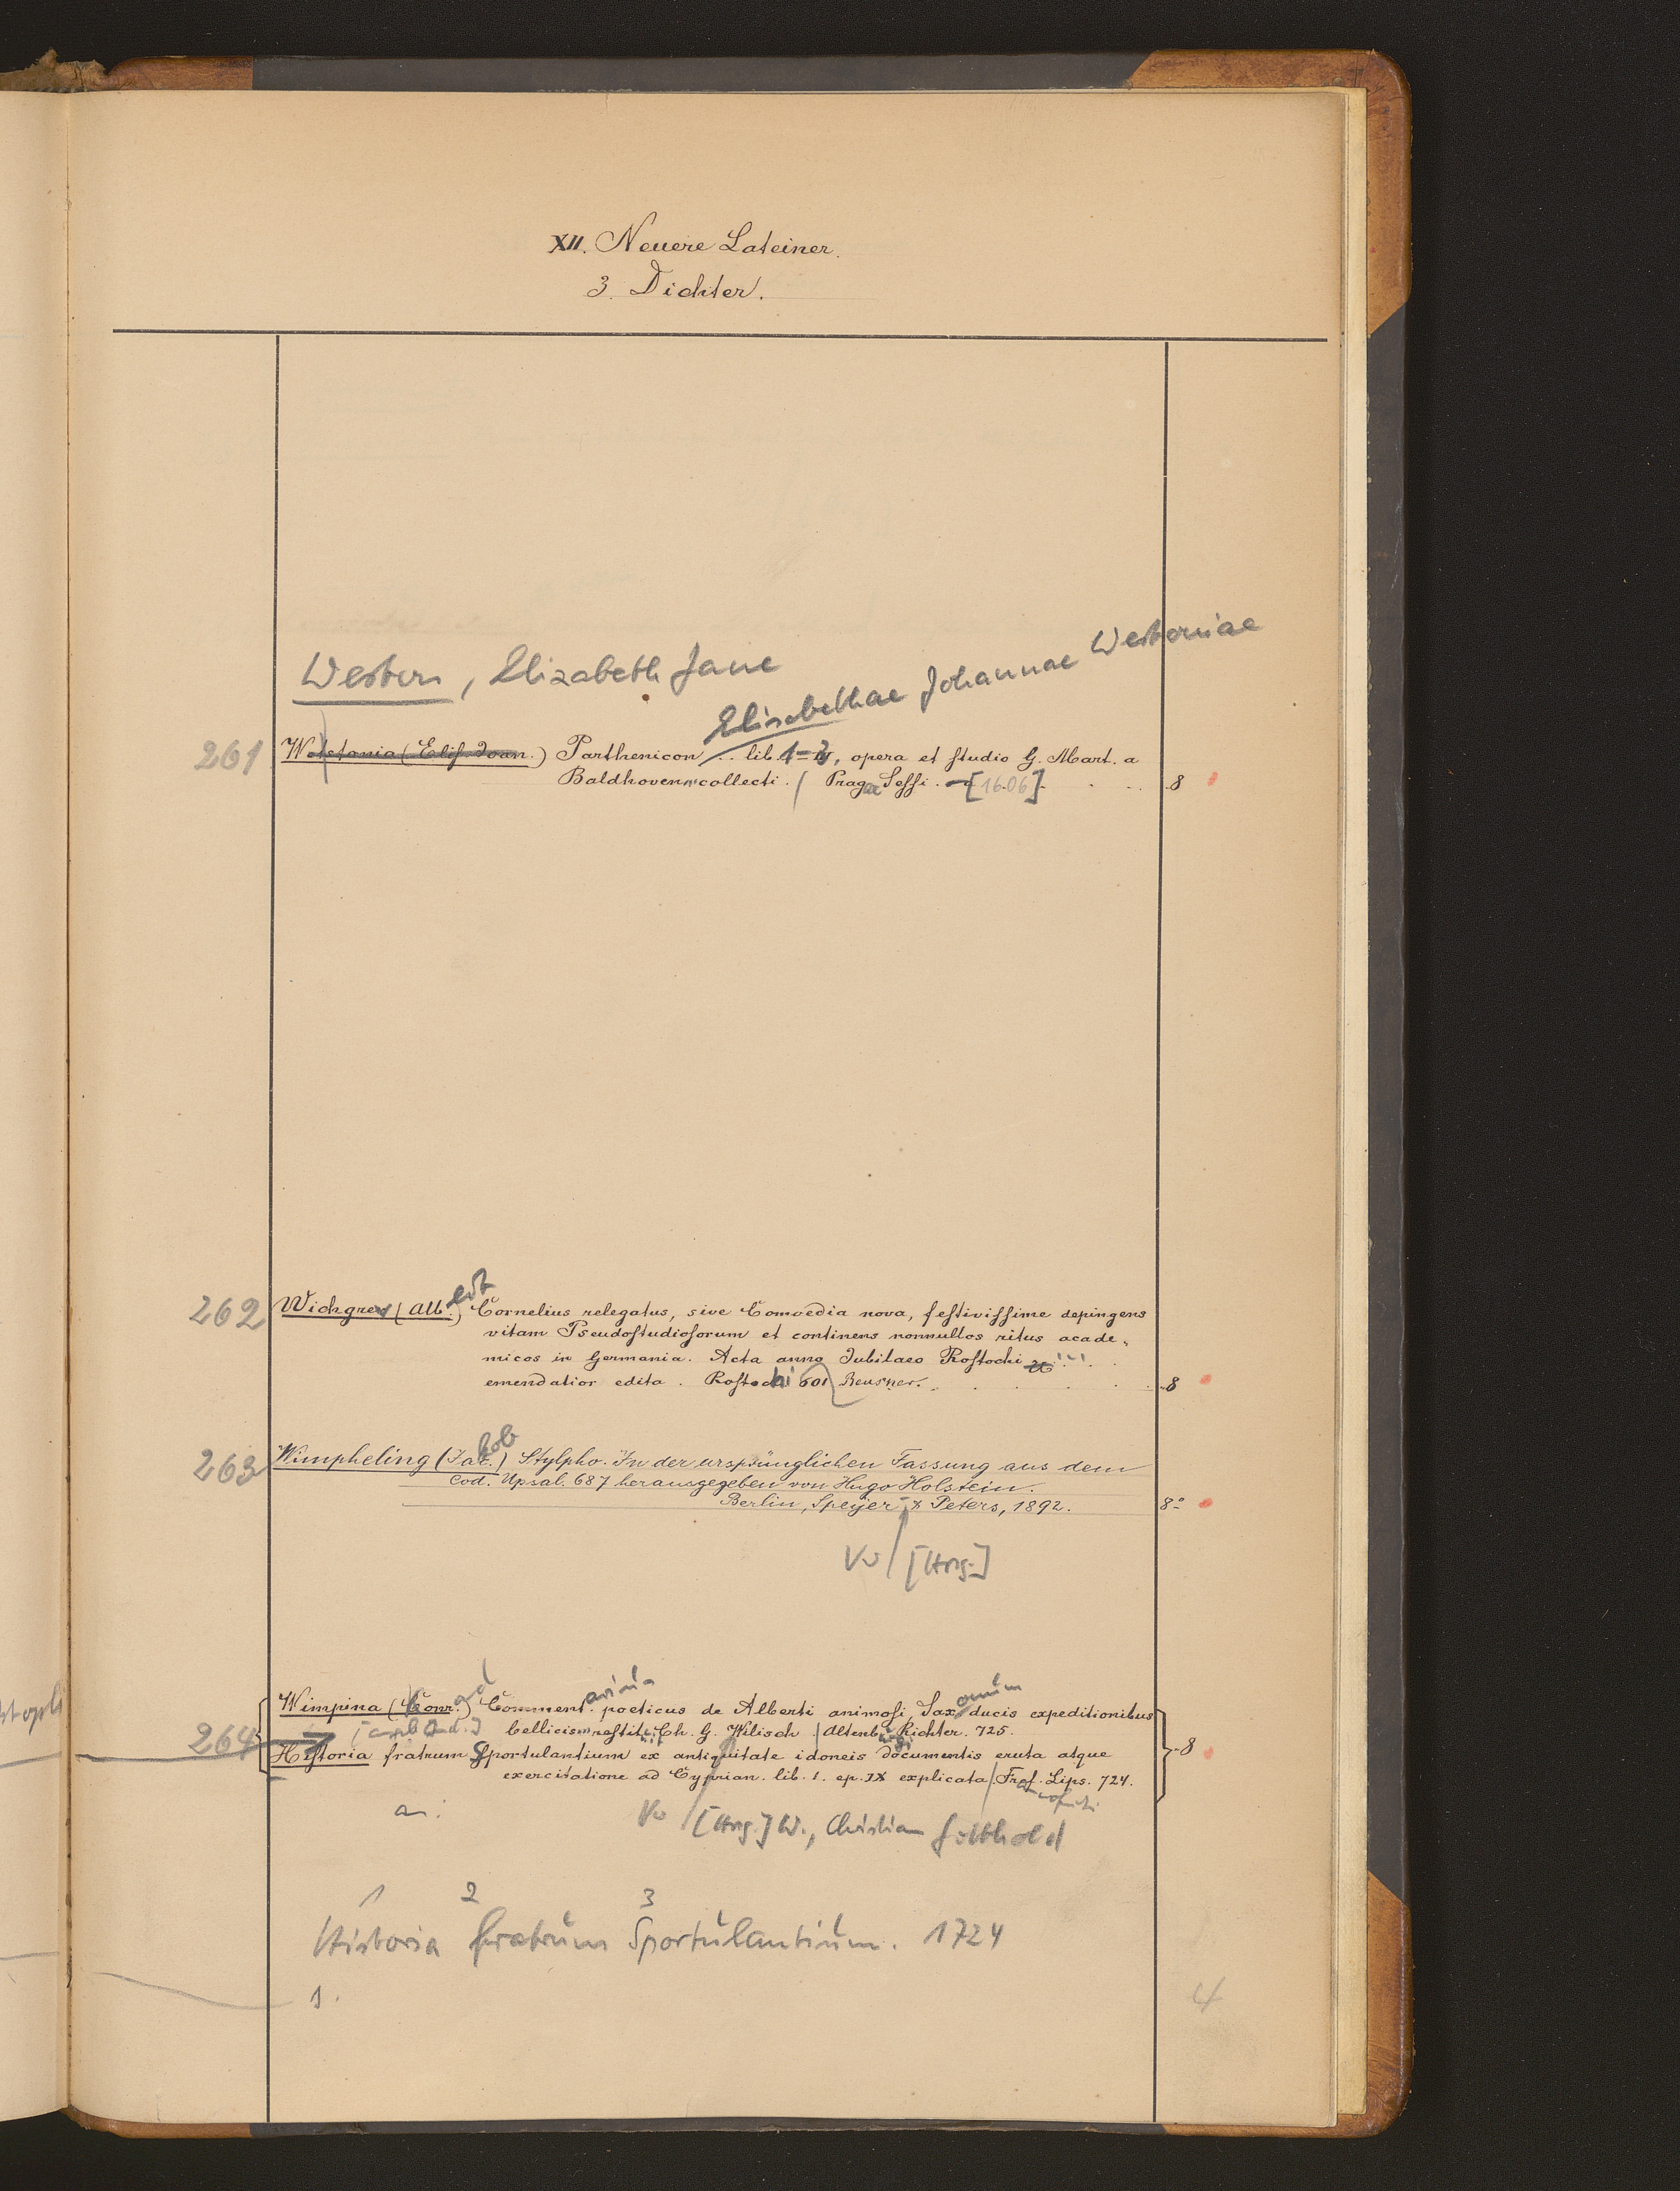 XII. Neuere Lateiner.
3. Dichter.
Western, Elizabeth Jane
Elisabethae Johannae Westoniae
261 Westonia (Elis. Joan.) Parthenicon .. lib. 1-3, opera et studio G. Mart. a
Baldhoven collecti. Pragae Sessi. [1606] 8
262 Wichgrev (Alb.) Cornelius relegatus, sive Comoedia nova, festivissime depingens
vitam Pseudostudiosorum et continens nonnullos ritus acade-
micos in Germania. Acta anno Jubilaeo Rostochi ...
emendatior edita. Rostochi 601 Reusner. 8
263 Wimpheling (Jakob) Stylpho. In der ursprünglichen Fassung aus dem
Cod. Upsal. 687 herausgegeben von Hugo Holstein.
Berlin, Speyer & Peters, 1892. 8º
Vw / [Hrsg.]
264 Wimpina (Conrad) Commentarius poeticus de Alberti animosi, Saxonum ducis expeditionibus
bellicis restit. Ch. G. Wilisch Altenburgi Richter. 725.
Historia fratrum Sportulantium ex antiquitate idoneis documentis eruta atque
exercitatione ad Cyprian. lib. 1. ep. IX explicata. Franf. Lips. 724. 8
an:
Vw / [Hrsg.] W., Christian Gotthold
1 2 3
Historia fratrum Sportulantium. 1724
1.
4